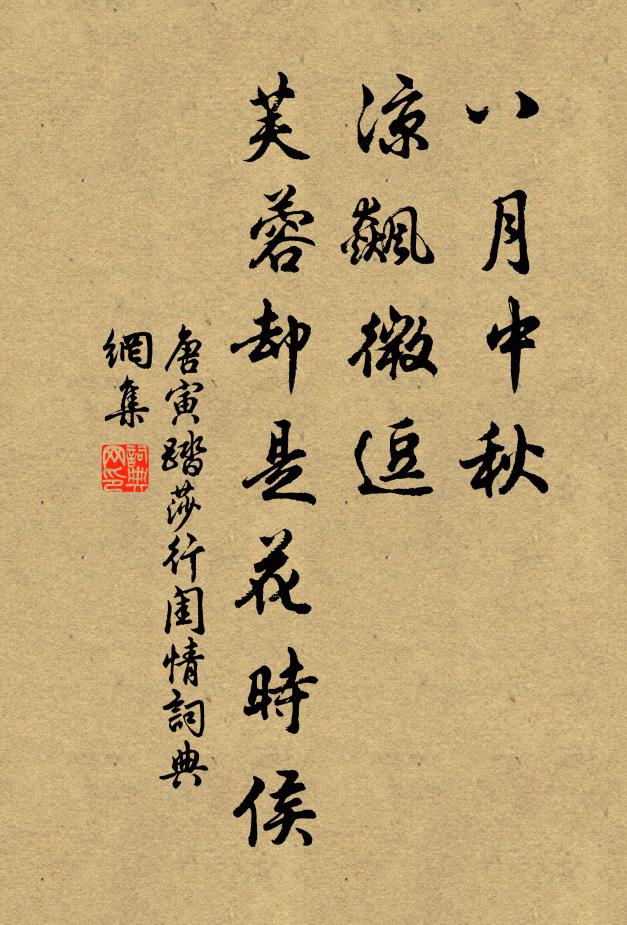 八月中秋
涼飆微逗
芙蓉却是花時侯
唐寅踏莎行閨情詞典
網集
詞典
网印